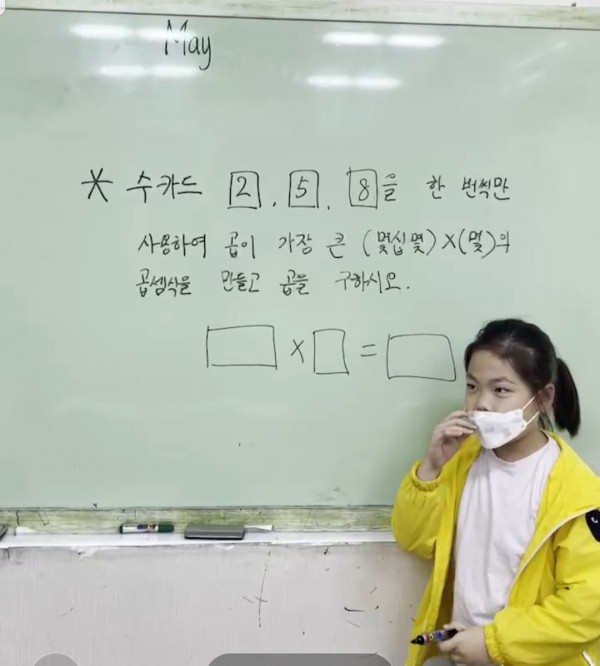 May
* 수카드 2, 5, 8을 한 번씩만
사용하여 곱이 가장 큰 (몇십몇)X(몇)의
곱셈식을 만들고 곱을 구하시오.
□ X □ = □